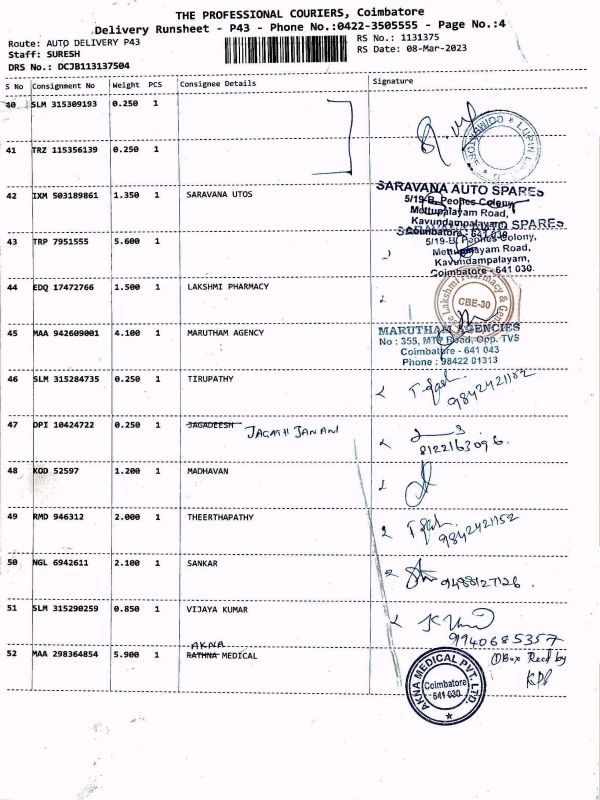 THE PROFESSIONAL COURIERS, Coimbatore
Delivery Runsheet - P43 - Phone No.:0422-3505555 - Page No.:4
Route: AUTO DELIVERY P43 RS No.: 1131375
Staff: SURESH RS Date: 08-Mar-2023
DRS No.: DCJB113137504
S No Consignment No Weight PCS Consignee Details Signature
40 SLM 315309193 0.250 1
COIMBATORE * LUPIN
41 TRZ 115356139 0.250 1
42 IXM 503189861 1.350 1 SARAVANA UTOS
SARAVANA AUTO SPARES
5/19-B, Peoples Colony,
Mettupalayam Road,
Kavundampalayam,
Coimbatore - 641 030.
43 TRP 7951555 5.600 1
SARAVANA AUTO SPARES
5/19-B, Peoples Colony,
Mettupalayam Road,
Kavundampalayam,
Coimbatore - 641 030.
44 EDQ 17472766 1.500 1 LAKSHMI PHARMACY
Lakshmi Pharmacy &
CBE-30
45 MAA 942609001 4.100 1 MARUTHAM AGENCY
MARUTHAM AGENCIES
No : 355, MTP Road, Opp. TVS
Coimbatore - 641 043
Phone : 98422 01313
46 SLM 315284735 0.250 1 TIRUPATHY
9842421152
47 DPI 10424722 0.250 1 JAGADEESH JAGATH JANANI
8122163096.
48 KOD 52597 1.200 1 MADHAVAN
49 RMD 946312 2.000 1 THEERTHAPATHY
9842421152
50 NGL 6942611 2.100 1 SANKAR
9488127126.
51 SLM 315290259 0.850 1 VIJAYA KUMAR
9940685357
AKNA
52 MAA 298364854 5.900 1 RATHNA MEDICAL
Box Recd by
AKNA MEDICAL PVT. LTD.
Coimbatore
641 030.